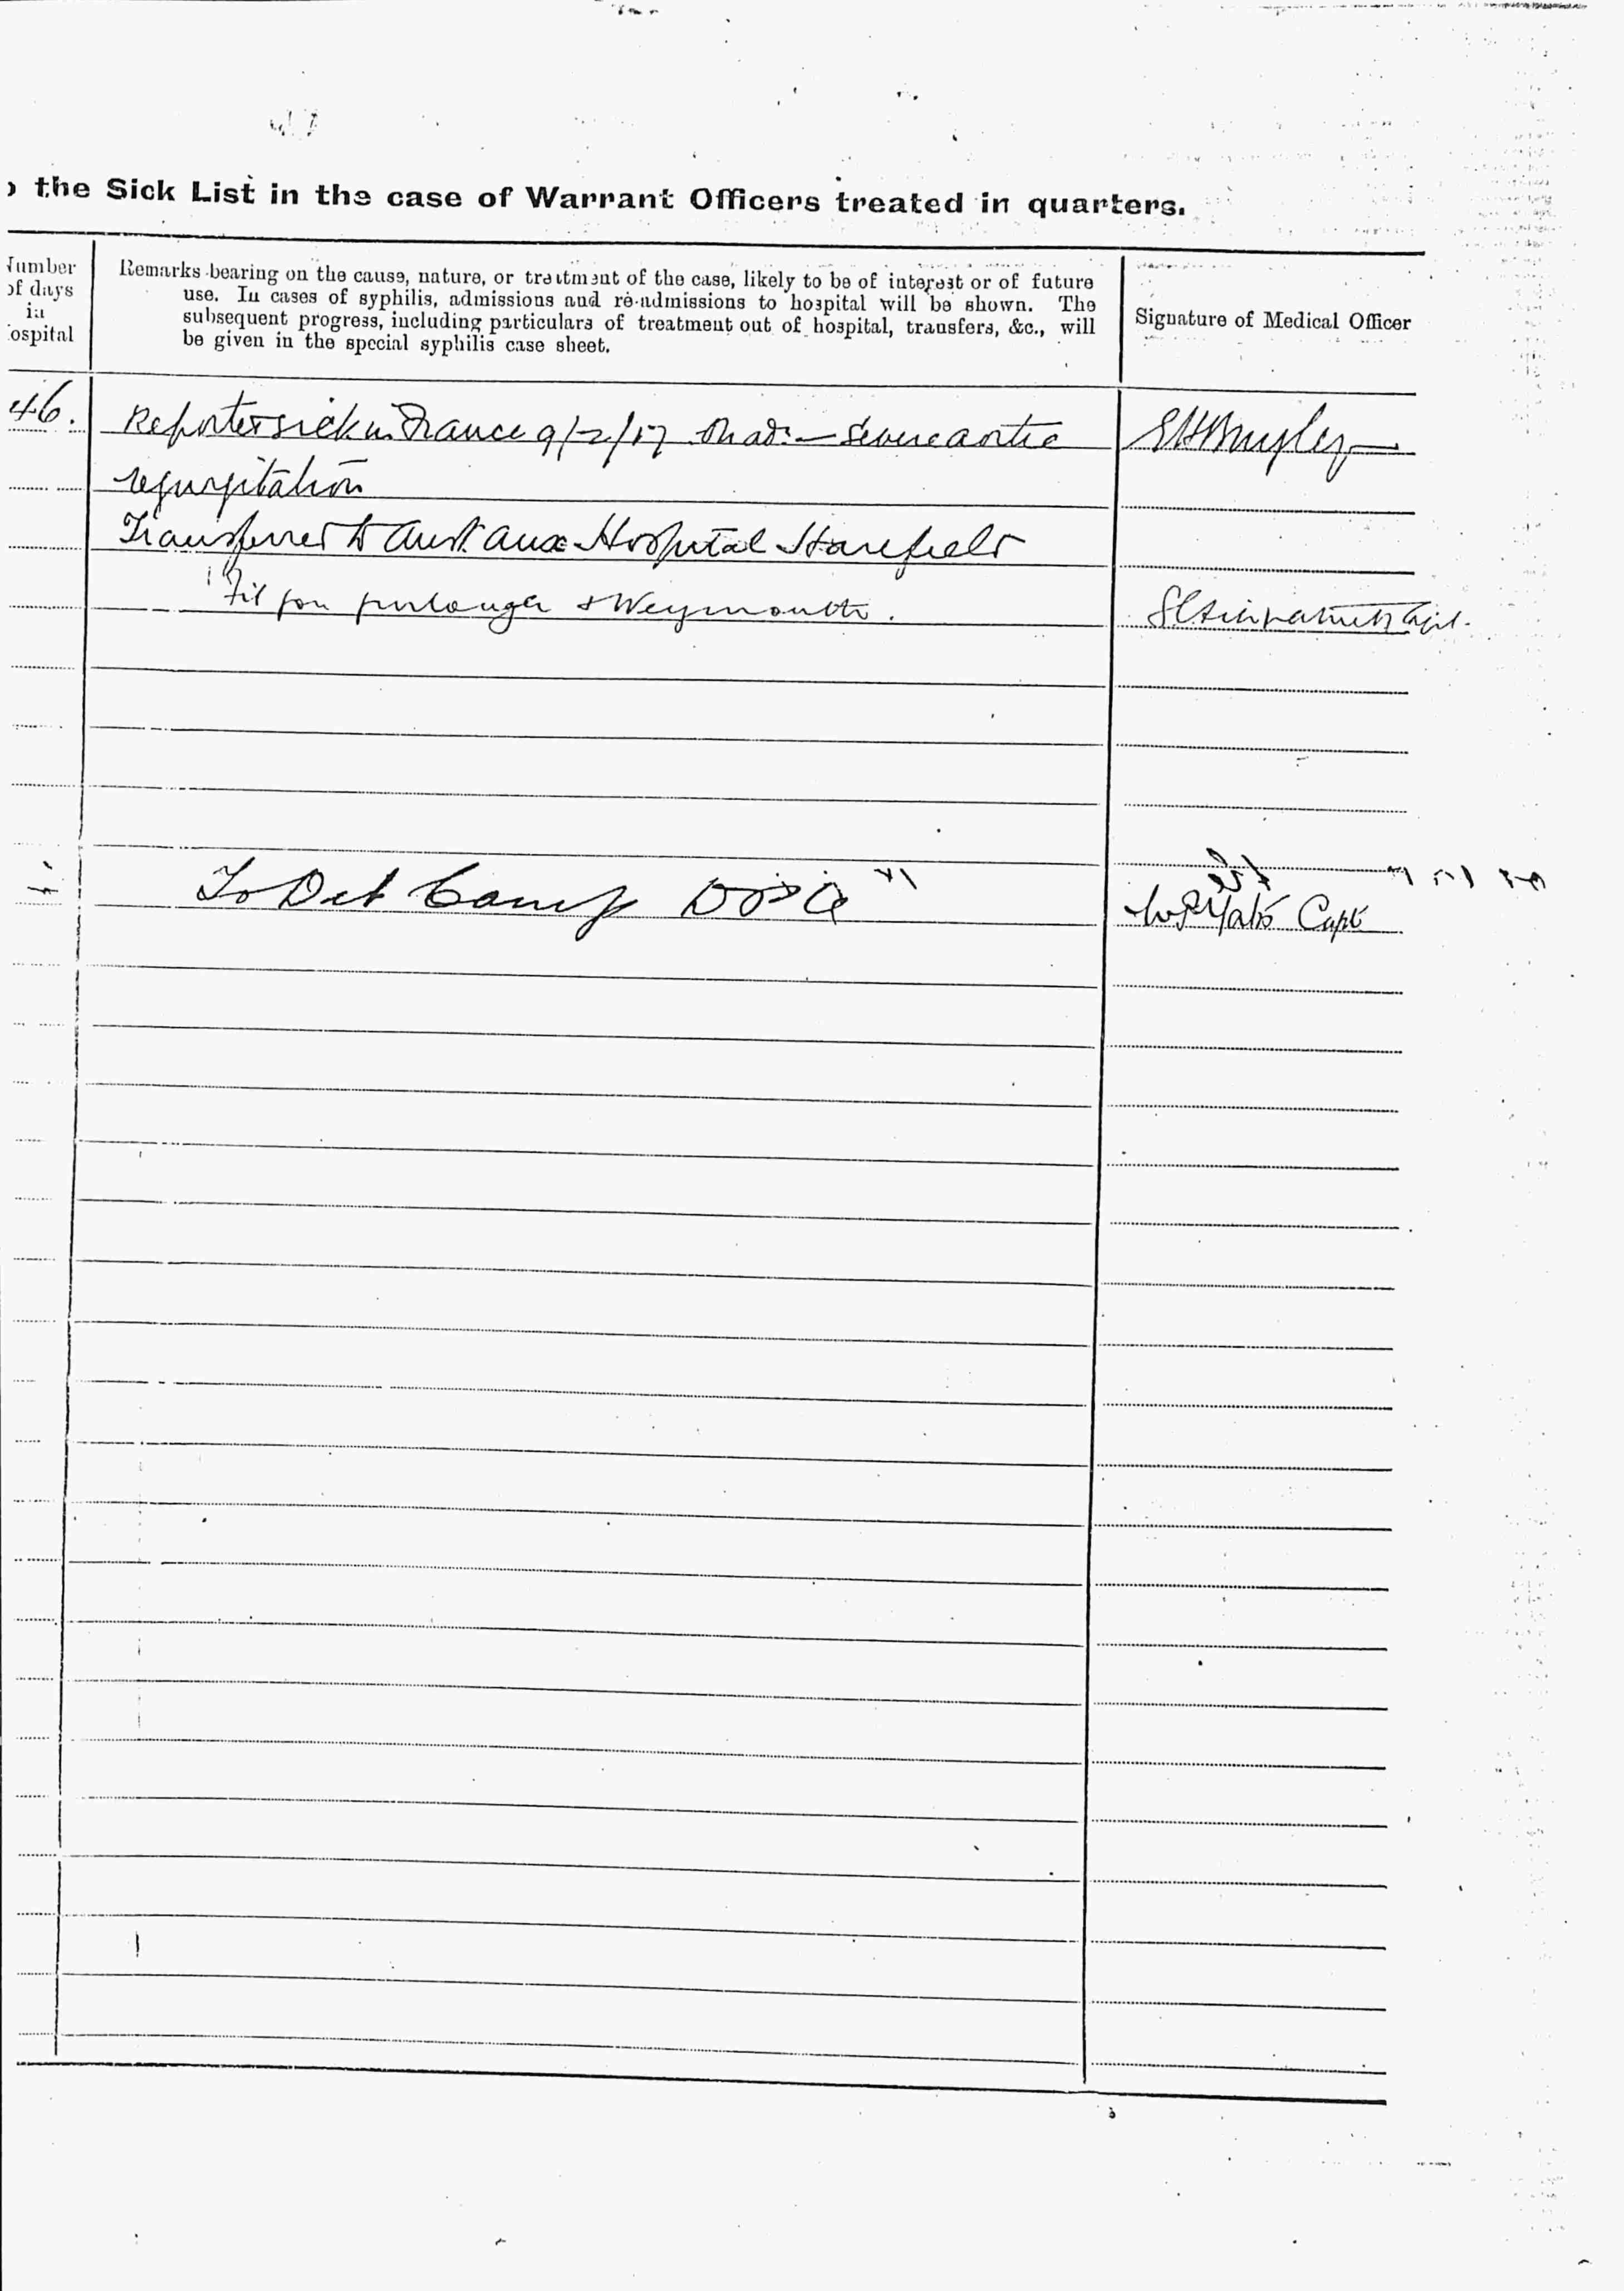 the Sick List in the case of Warrant Officers treated in quarters.
Number
of days
in
ospital
Remarks bearing on the cause, nature, or treatment of the case, likely to be of interest or of future
use. In cases of syphilis, admissions and re-admissions to hospital will be shown. The
subsequent progress, including particulars of treatment out of hospital, transfers, &c., will
be given in the special syphilis case sheet.
Signature of Medical Officer
46.
Reported sick in France 9/2/17 severe aortic
regurgitation
Transferred to Aust. Aux Hospital Harefield
Fit for furlough & Weymouth.
To Det Camp
Capt